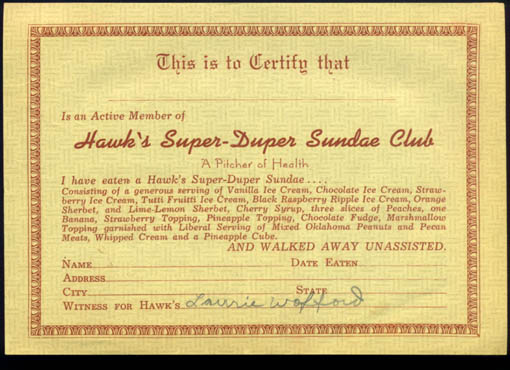 This is to Certify that
Is an Active Member of
Hawk's Super-Duper Sundae Club
A Pitcher of Health
I have eaten a Hawk's Super-Duper Sundae....
Consisting of a generous serving of Vanilla Ice Cream, Chocolate Ice Cream, Straw-
berry Ice Cream, Tutti Fruitti Ice Cream, Black Raspberry Ripple Ice Cream, Orange
Sherbet, and Lime-Lemon Sherbet, Cherry Syrup, three slices of Peaches, one
Banana, Strawberry Topping, Pineapple Topping, Chocolate Fudge, Marshmallow
Topping garnished with Liberal Serving of Mixed Oklahoma Peanuts and Pecan
Meats, Whipped Cream and a Pineapple Cube.
AND WALKED AWAY UNASSISTED.
NAME DATE EATEN
ADDRESS
CITY STATE
WITNESS FOR HAWK'S Laurie Wofford